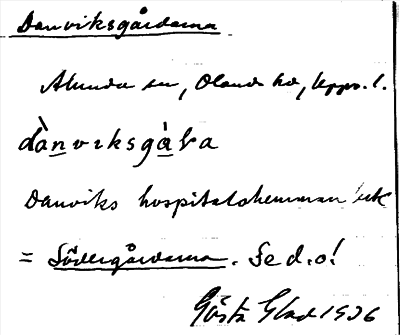 Danviksgårdarna
Alunda sn, Olands hd, Upps. l.
dànviksgà̱ɽa
Danviks hospitalshemman
= Södergårdarna. Se d. o!
Gösta Glad 1936